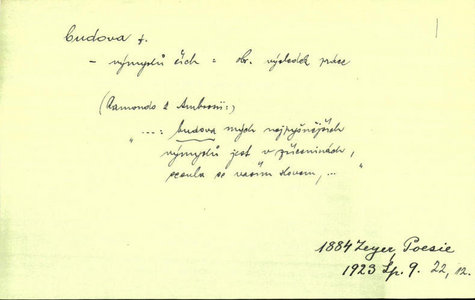 budova f.
– výmyslů čích = obr. výsledek práce
(Ramondo z Ambrosii:)
"...: budova mých nejpyšnějších
výmyslů jest v zříceninách,
ssula se vaším slovem, ... "
1884 Zeyer, Poesie
1923 Sp. 9. 22, 12.